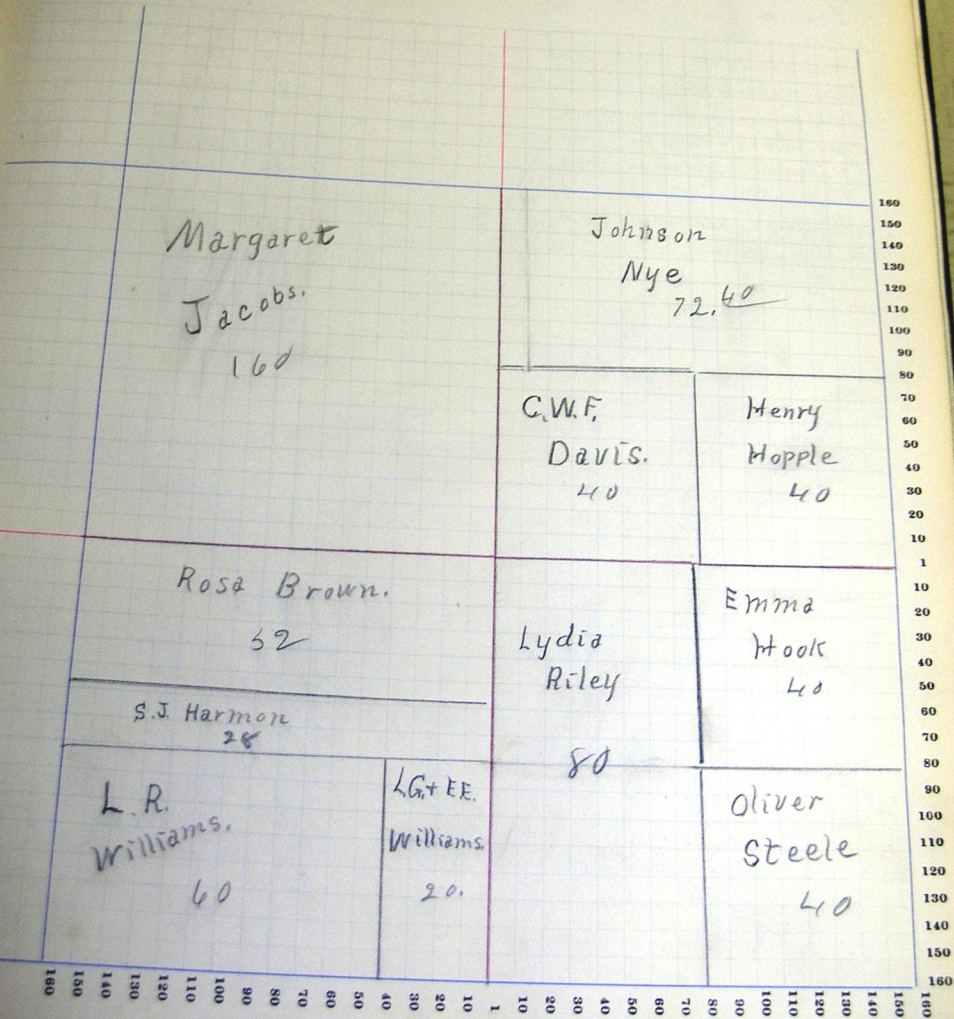 Margaret
Jacobs.
160
Johnson
Nye
72.40
C.W.F.
Davis.
40
Henry
Hopple
40
Rosa Brown.
52
S.J. Harmon
28
L.R.
Williams.
60
L.G.+ E.E.
Williams.
20.
Lydia
Riley
80
Emma
Hook
40
Oliver
Steele
40
160
150
140
130
120
110
100
90
80
70
60
50
40
30
20
10
1
10
20
30
40
50
60
70
80
90
100
110
120
130
140
150
160
160 150 140 130 120 110 100 90 80 70 60 50 40 30 20 10 1 10 20 30 40 50 60 70 80 90 100 110 120 130 140 150 160